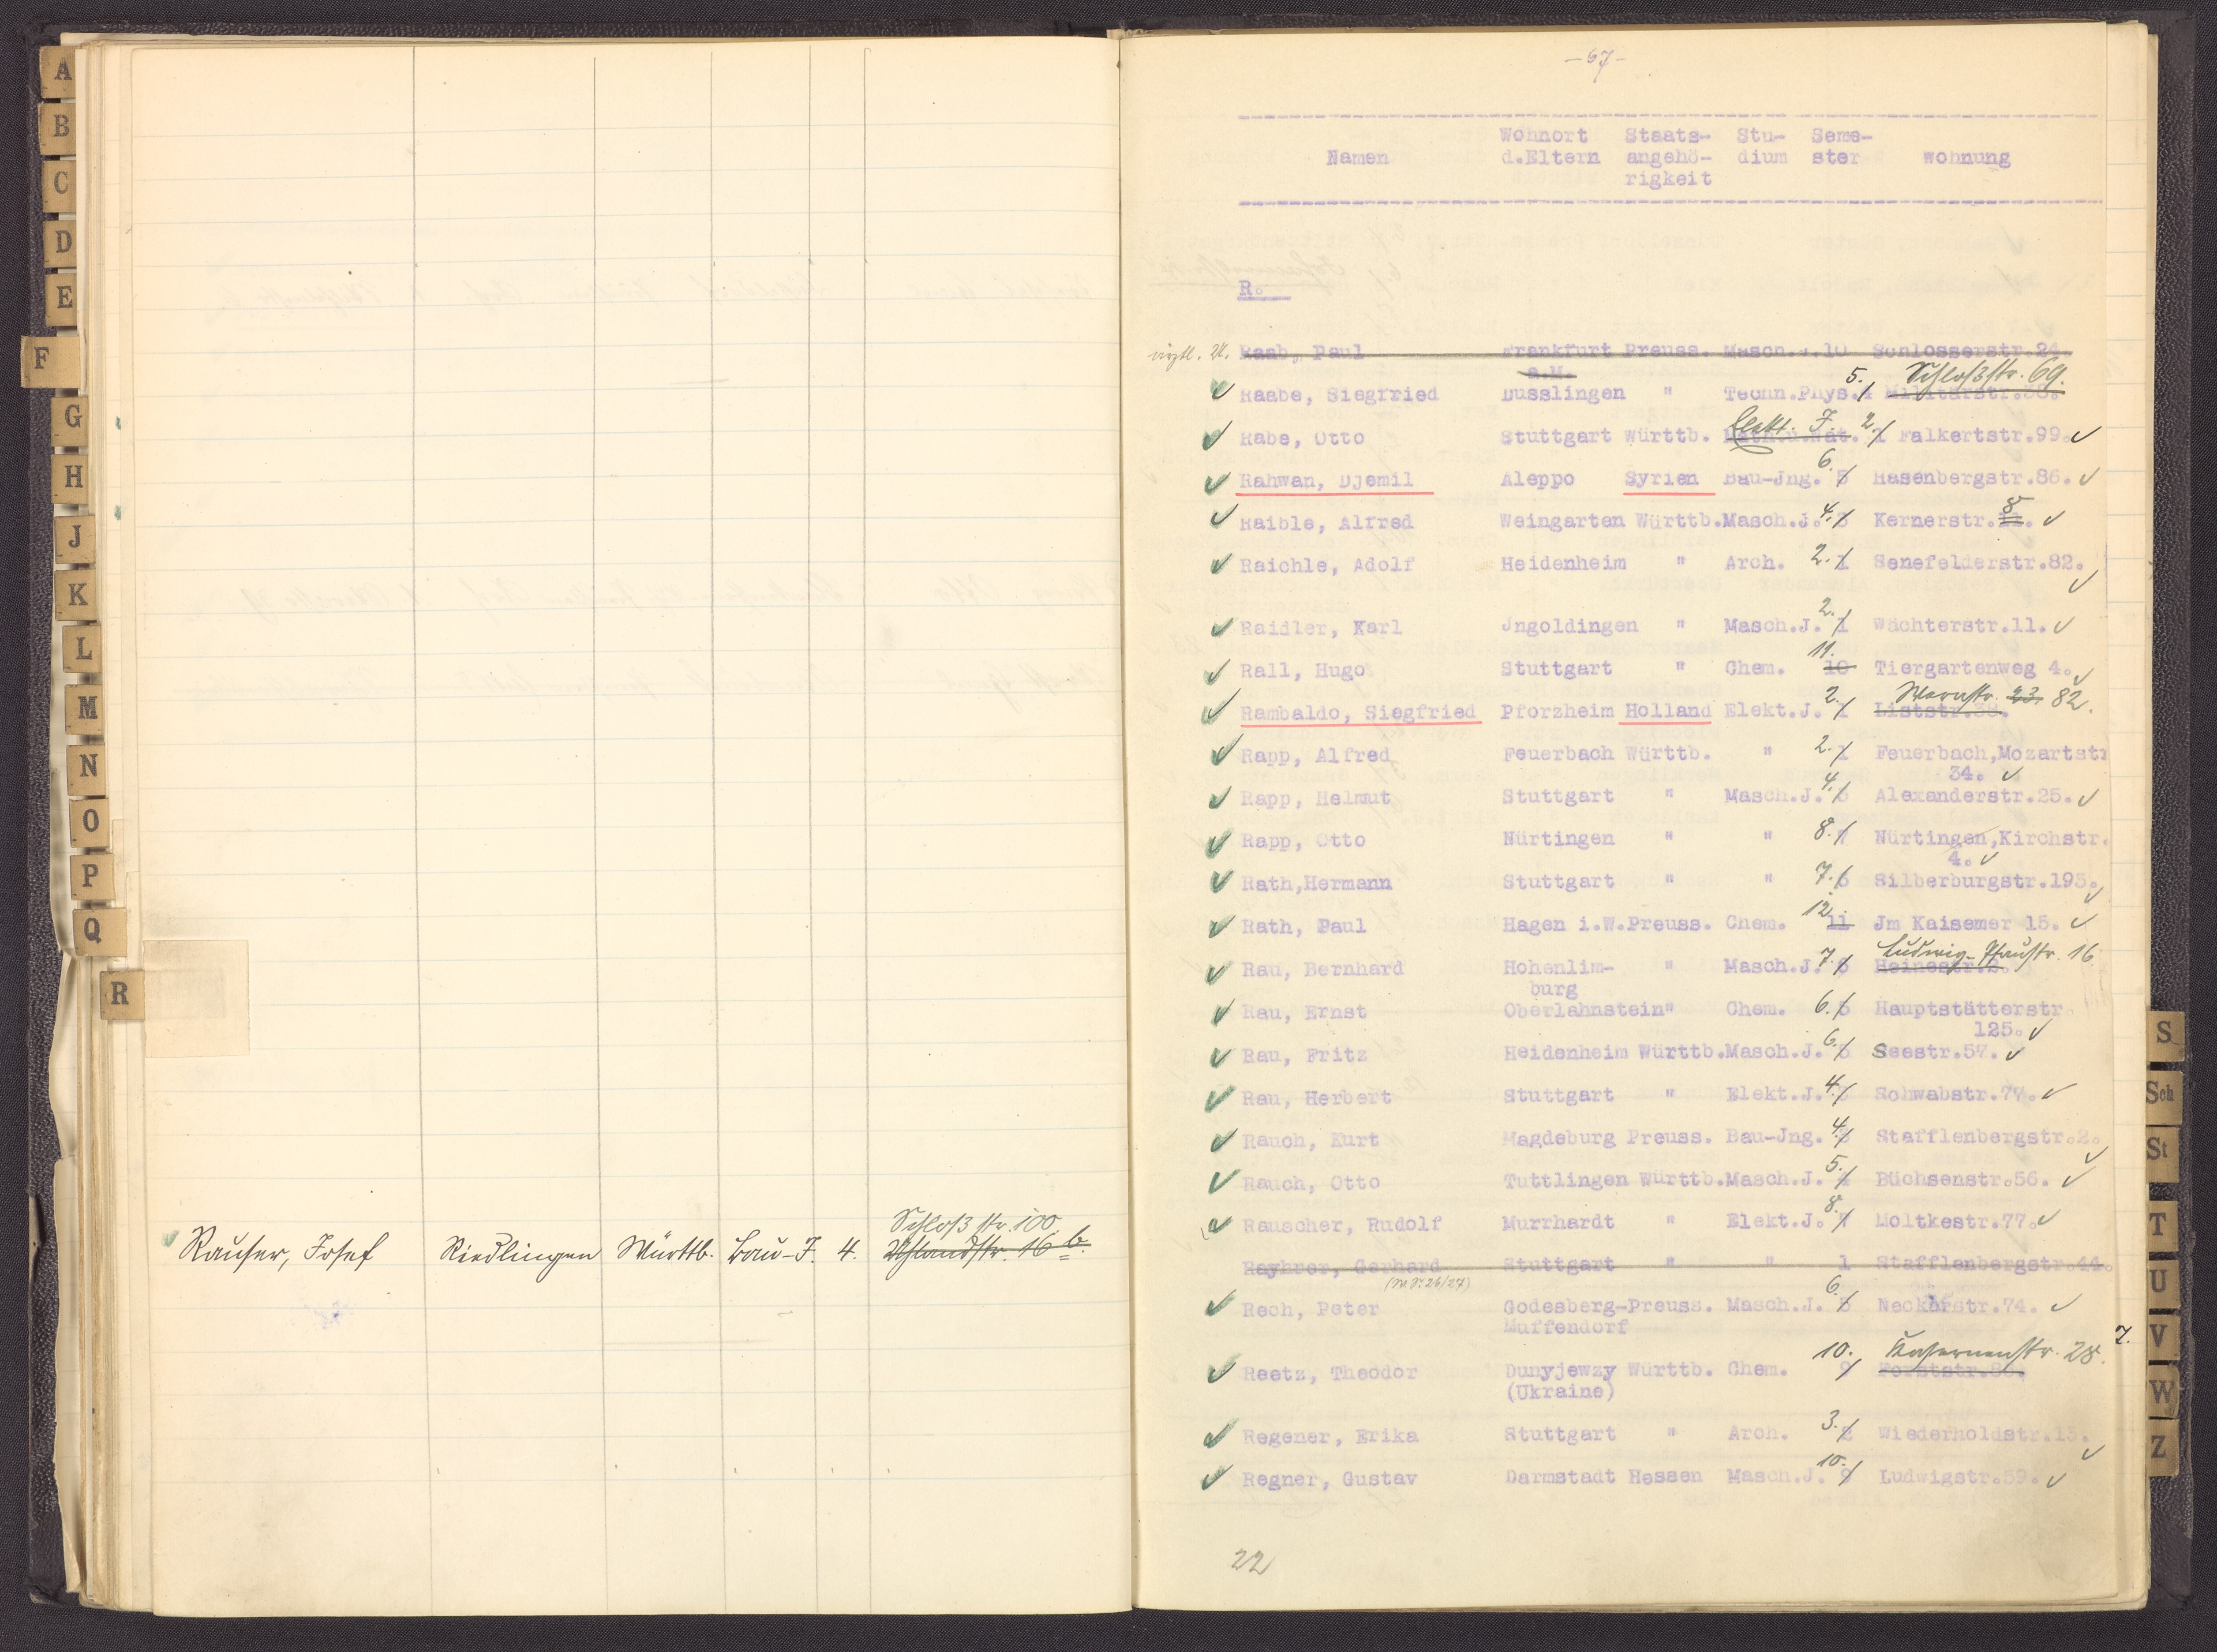 A
B
C
D
E
F
G
H
J
K
L
M
N
O
P
Q
R
Schloßstr. 100.
Rauser, Josef Riedlingen Württb. Bau-J. 4. Uhlandstr. 16 b.
-67-
Namen Wohnort d.Eltern Staats-angehö-rigkeit Stu-dium Seme-ster Wohnung
R.
Raab, Paul Frankfurt Preuss. Masch.J.10 Schlosserstr.24.
a.M.
5. Schloßstr. 69.
Raabe, Siegfried Dusslingen " Techn.Phys.4 Militärstr.38.
Elekt. J. 2.
Rabe, Otto Stuttgart Württb. Math.u.Nat. 1 Falkertstr.99.
6.
Rahwan, Djemil Aleppo Syrien Bau-Jng. 5 Hasenbergstr.86.
4. 8
Raible, Alfred Weingarten Württb.Masch.J. 3 Kernerstr.
Raichle, Adolf Heidenheim " Arch. 2. 1 Senefelderstr.82.
2.
Raidler, Karl Jngoldingen " Masch.J. 1 Wächterstr.11.
11.
Rall, Hugo Stuttgart " Chem. 10 Tiergartenweg 4.
2. Wernstr. 23. 82.
Rambaldo, Siegfried Pforzheim Holland Elekt.J. 1 Liststr.38.
Rapp, Alfred Feuerbach Württb. " 2. 1 Feuerbach,Mozartstr
34.
4.
Rapp, Helmut Stuttgart " Masch.J. 3 Alexanderstr.25.
Rapp, Otto Nürtingen " " 8. 7 Nürtingen,Kirchstr.
4.
Rath,Hermann Stuttgart " " 7. 6 Silberburgstr.195.
12.
Rath, Paul Hagen i.W.Preuss. Chem. 11 Jm Kaisemer 15.
7. Ludwig-Pfaustr. 16.
Rau, Bernhard Hohenlim- " Masch.J. 6 Heinestr.2.
burg
Rau, Ernst Oberlahnstein" Chem. 6. 5 Hauptstätterstr
125.
6.
Rau, Fritz Heidenheim Württb.Masch.J. 5 Seestr.57.
4.
Rau, Herbert Stuttgart " Elekt.J. 3 Schwabstr.77.
4.
Rauch, Kurt Magdeburg Preuss. Bau-Jng. 3 Stafflenbergstr.2.
5.
Rauch, Otto Tuttlingen Württb.Masch.J. 4 Büchsenstr.56.
8.
Rauscher, Rudolf Murrhardt " Elekt.J. 7 Moltkestr.77.
Rayhrer, Gerhard Stuttgart " " 1 Stafflenbergstr.44.
(W.S. 26/27)
6.
Rech, Peter Godesberg-Preuss. Masch.J. 5 Neckarstr.74.
Muffendorf
10. Kasernenstr. 28. 7.
Reetz, Theodor Dunyjewzy Württb. Chem. 9 Forststr.
(Ukraine)
3.
Regener, Erika Stuttgart " Arch. 2 Wiederholdstr.13.
10.
Regner, Gustav Darmstadt Hessen Masch.J. 9 Ludwigstr.59.
22
S
Sch
St
T
U
V
W
Z